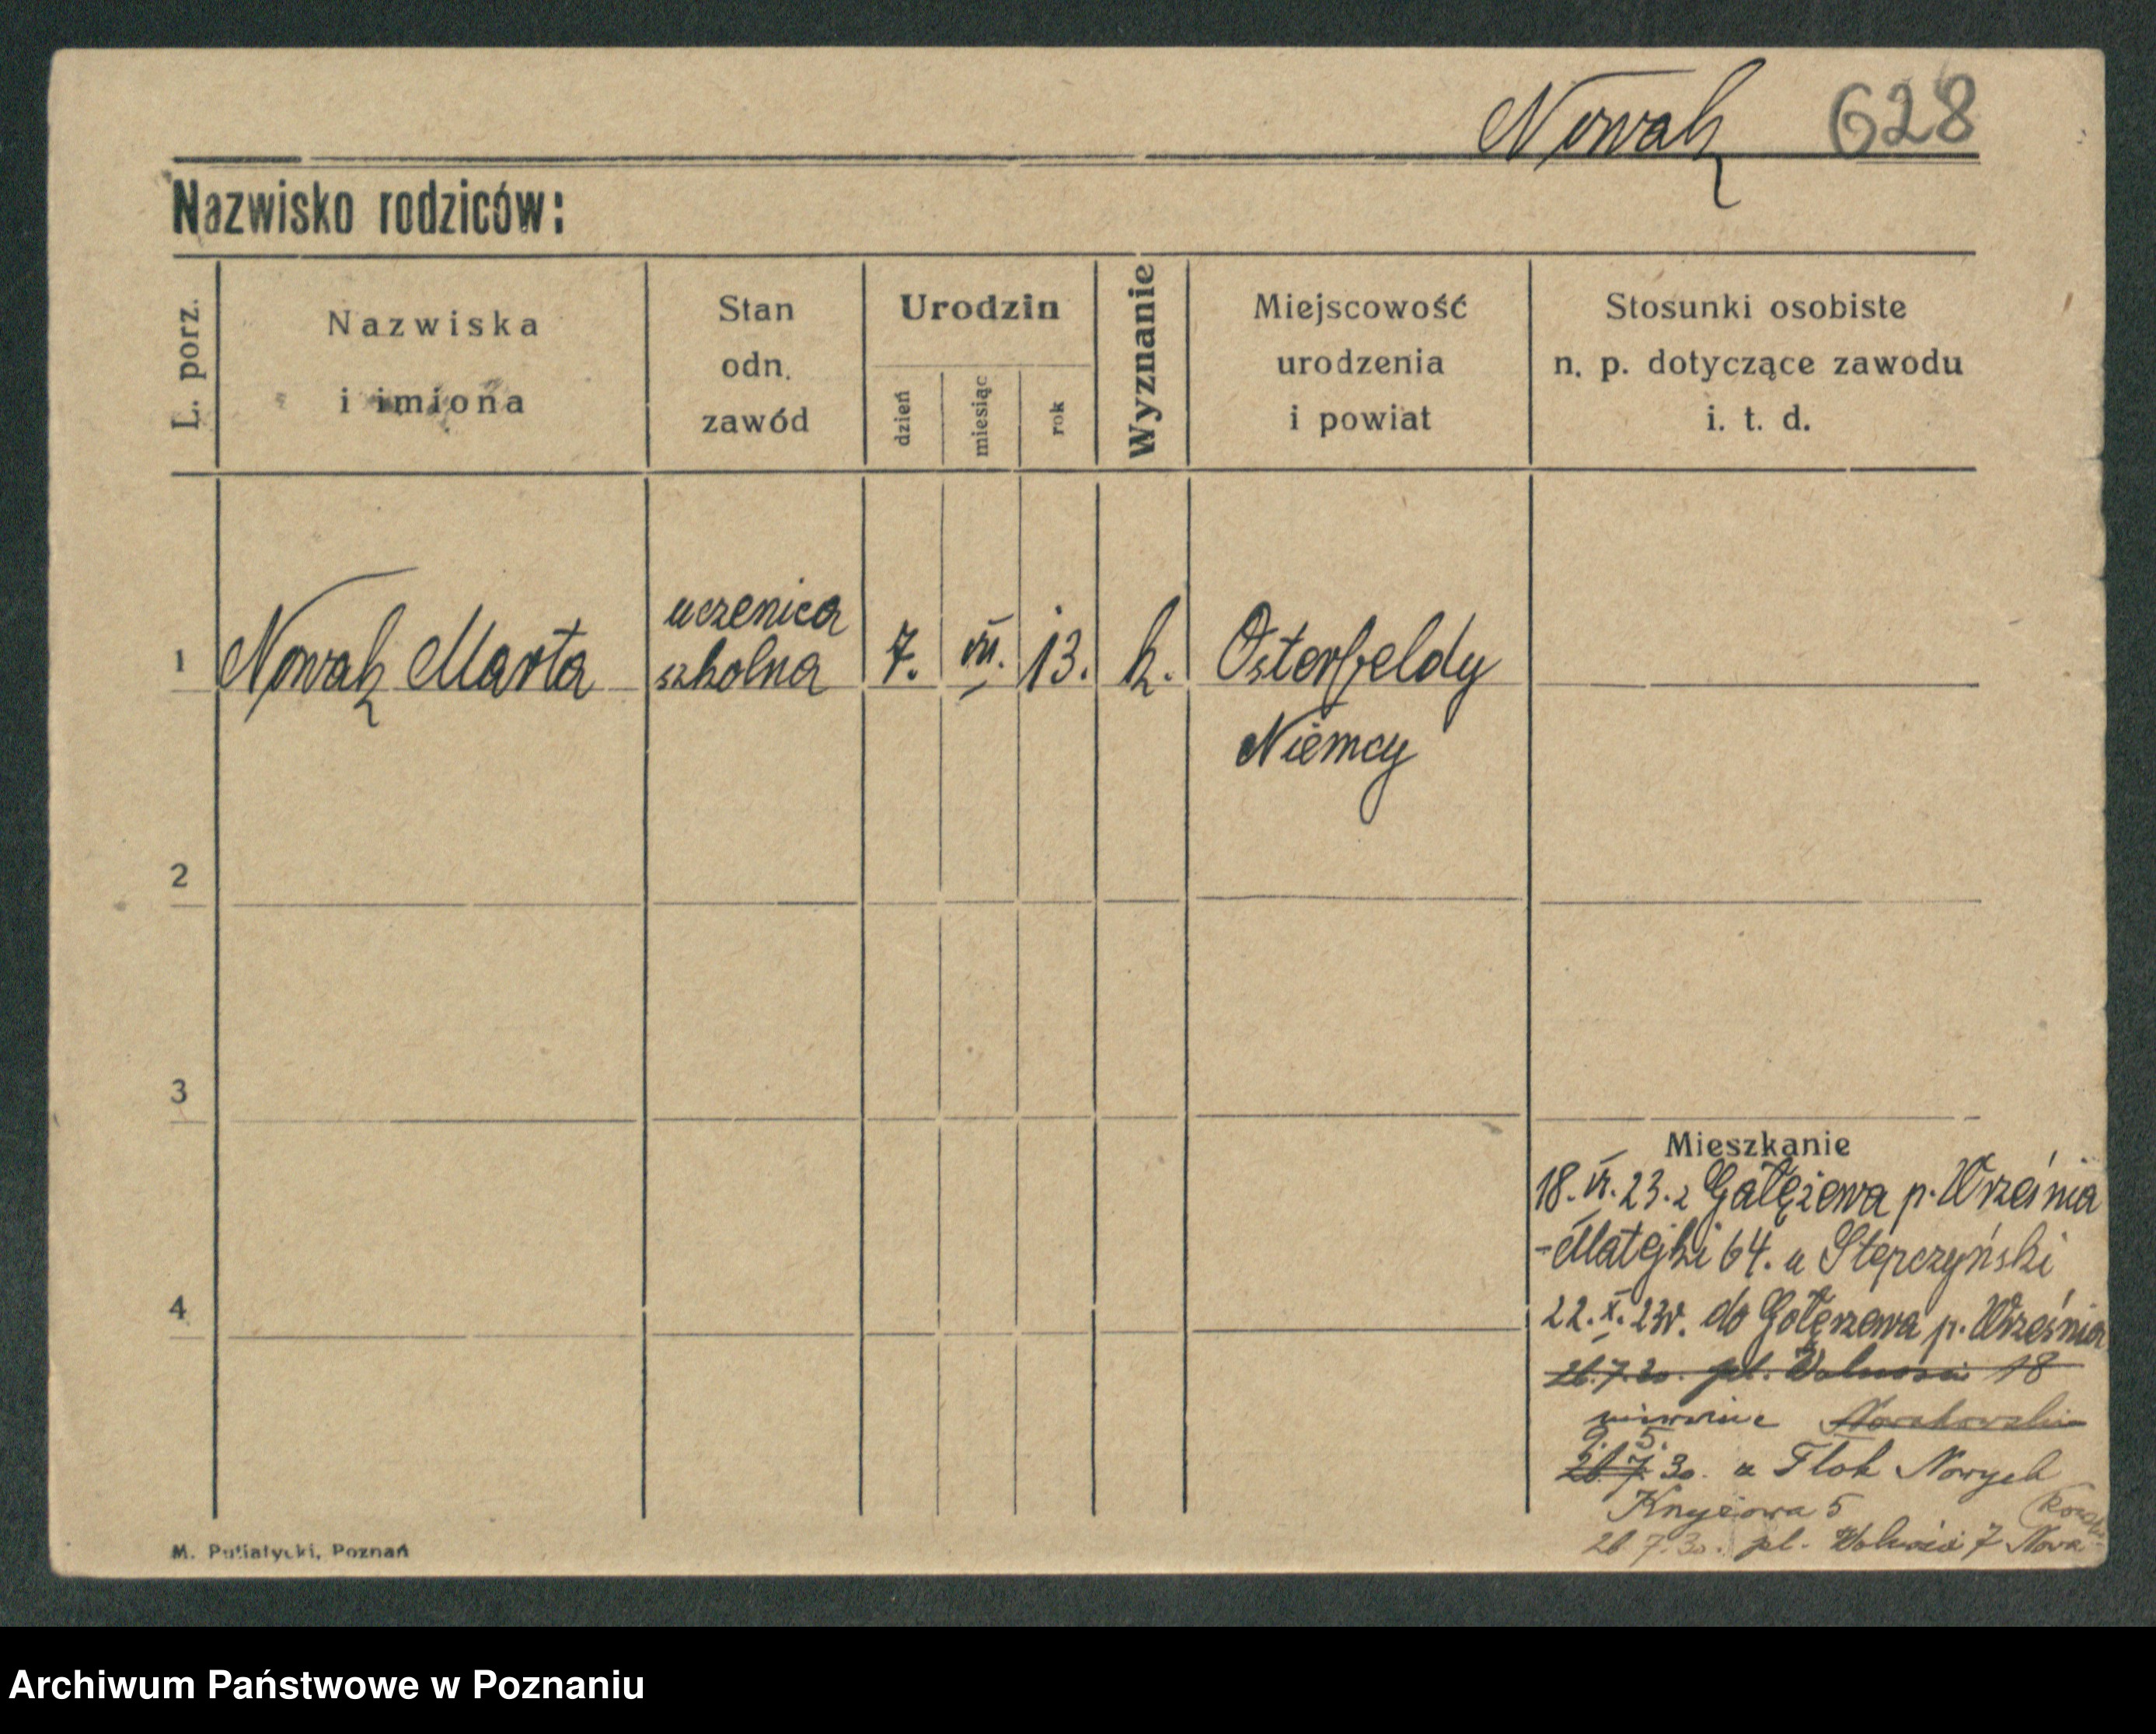 Nowak 628
Nazwisko rodziców:
L. porz.
Nazwiska
i imiona
Stan
odn.
zawód
Urodzin
dzień
miesiąc
rok
Wyznanie
Miejscowość
urodzenia
i powiat
Stosunki osobiste
n. p. dotyczące zawodu
i. t. d.
1 Nowak Marta uczenica szkolna 7. VII. 13. k. Osterfeldy
Niemcy
2
3
4
Mieszkanie
18. VI. 23. z Gałęzewa p. Września
- Matejki 64. u Stęrczyński
22. X. 23r. do Gołęzewa p. Września
26.7.30. pl. Wolności 18
9. 5.
26. 7. 30. u Flok Nowych
5
26 7.30. pl. Wolności 7 Nowa
M. Putiatycki, Poznań
Archiwum Państwowe w Poznaniu